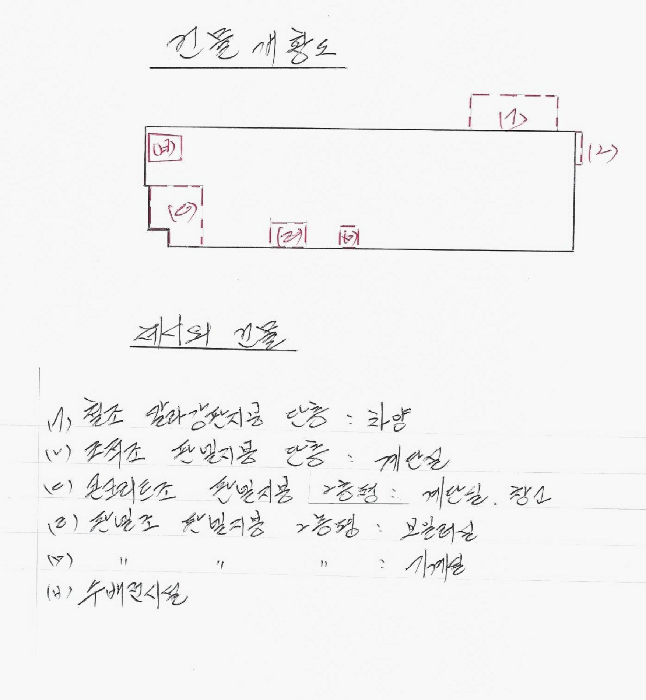 건물개황도
(ㄱ)
(ㅂ)
(ㄴ)
(ㄷ)
(ㄹ)
(ㅁ)
제시외 건물
(ㄱ) 철조 칼라강판지붕 단층 : 차양
(ㄴ) 조적조 판넬지붕 단층 : 계단실
(ㄷ) 콘크리트조 판넬지붕 2층평 : 계단실. 창고
(ㄹ) 판넬조 판넬지붕 2층평 : 보일러실
(ㅁ) " " " : 기계실
(ㅂ) 수배전시설